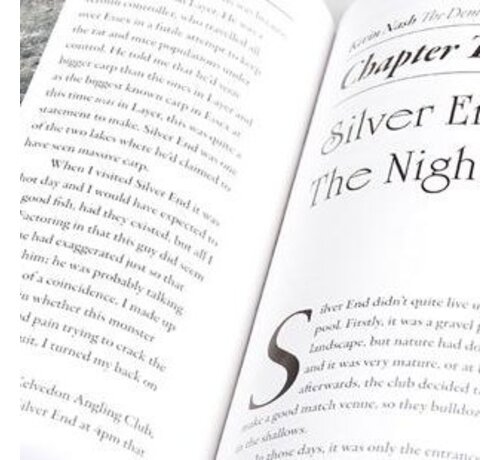 Layer. He was a
vermin controller, who travelled all
over Essex in a futile attempt to keep
the rat and mice populations under
control. He told me that he'd seen
bigger carp than the ones in Layer and
as the biggest known carp in Essex at
this time was in Layer, this was quite a
statement to make. Silver End was one
of the two lakes where he'd claimed to
have seen massive carp.
When I visited Silver End it was
hot day and I would have expected to
good fish, had they existed, but all I
factoring in that this guy did seem
he had exaggerated just so that
him; he was probably talking
of a coincidence. I made up
whether this monster
d pain trying to crack the
uit, I turned my back on
Kelvedon Angling Club,
Silver End at 4pm that
Kevin Nash The Dem
Chapter T
Silver En
The Nigh
Silver End didn't quite live u
pool. Firstly, it was a gravel p
landscape, but nature had do
and it was very mature, or at l
afterwards, the club decided t
make a good match venue, so they bulldoz
in the shallows.
In those days, it was only the entranc